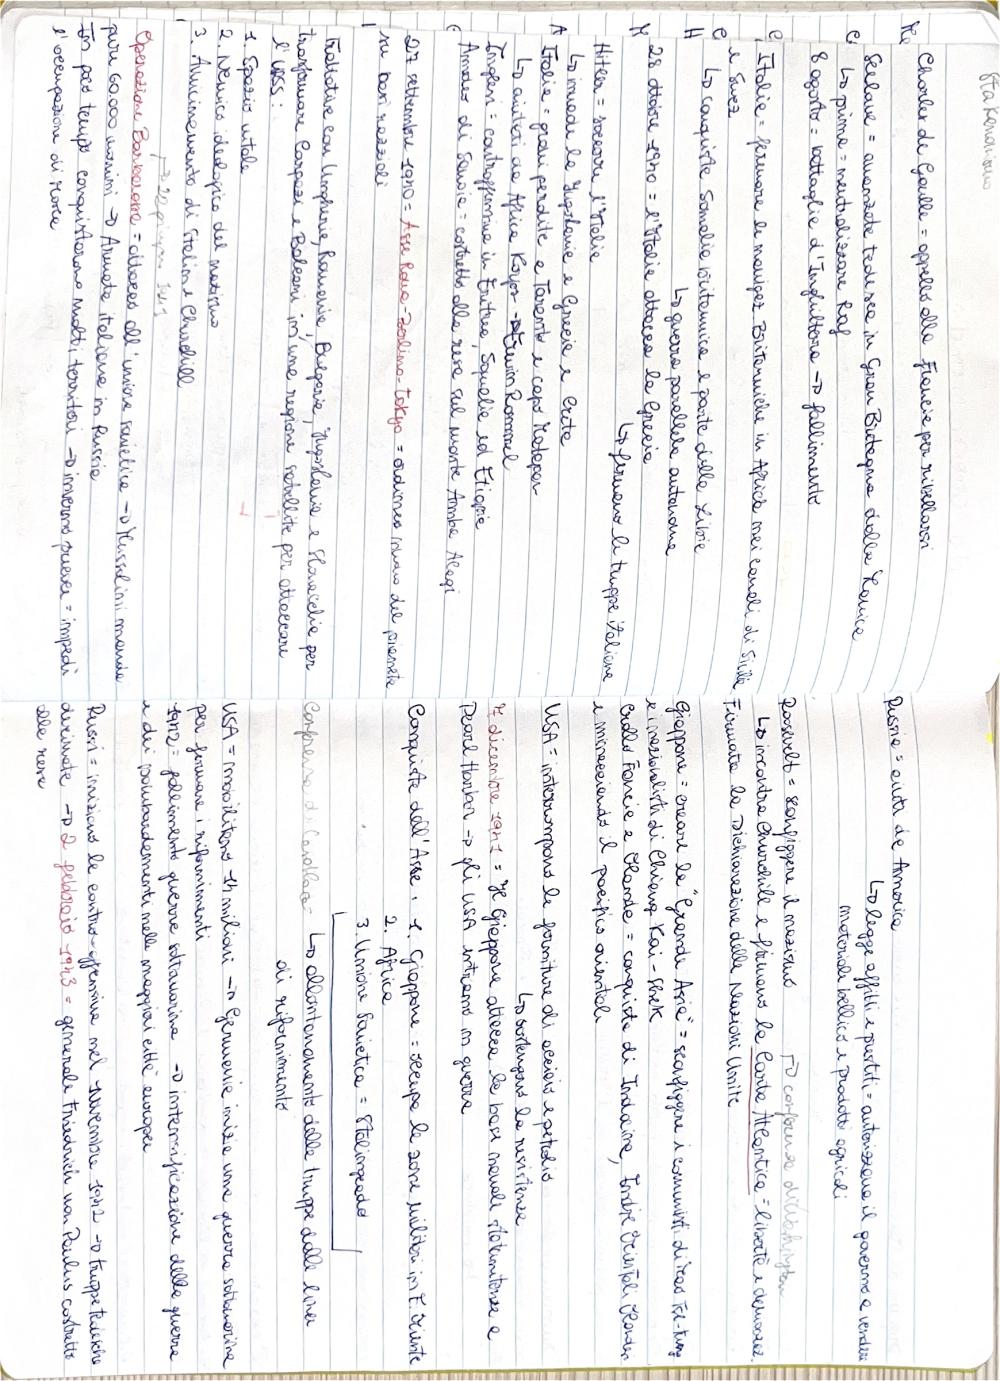 Charles de Gaulle = appello alla Francia per ribellarsi
Selave = avanzata tedesca in Gran Bretagna dalla Manica
↳ prima = neutralizzare Raf
8 agosto = battaglia d'Inghilterra → fallimento
Italia = fermare le manipez Britanniche in Africa nei canali di Sicilia
e Suez
↳ conquista Somalia britannica e parte della Libia
↳ guerra parallela autonoma
28 ottobre 1940 = l'Italia attacca la Grecia
↳ fermano le truppe italiane
Hitler = soccorre l'Italia
↳ invade la Jugoslavia e Grecia e Creta
Italia = gravi perdite a Taranto e capo Matapan
↳ aiutati da Africa Korps → Erwin Rommel
Inglesi = controffensiva in Eritrea, Somalia ed Etiopia
Amedeo di Savoia = costretto alla resa sul monte Amba Alagi
27 settembre 1940 = Asse Roma-Berlino-Tokyo = ordine nuovo del pianeta
su basi razziali
Trattative con Ungheria, Romania, Bulgaria, Jugoslavia e Slovacchia per
trasformare Carpazi e Balcani in una regione satellite per attaccare
l'URSS:
1. Spazio vitale
2. Nemico ideologico del nazismo
3. Avvicinamento di Stalin e Churchill
→ 22 giugno 1941
Operazione Barbarossa = attacco all'unione sovietica → Mussolini manda
pure 60.000 uomini → Armata italiana in Russia
In poco tempo conquistarono molti territori → inverno = impedì
l'occupazione di Mosca
Russia = aiuto da America
↳ legge affitti e prestiti = autorizzava il governo a vendere
materiale bellico e prodotti agricoli
→ conferenza di Washington
Roosvelt = sconfiggere il nazismo
↳ incontra Churchill e firmano la Carta Atlantica = libertà e democraz.
Firmata la Dichiarazione delle Nazioni Unite
Giappone = creare la "Grande Asia" = sconfiggere i comunisti di Mao Tse-tung
e i nazionalisti di Chiang Kai-Shek
Crollo Francia e Olanda = conquista di Indocina, Indie Orientali Olandesi
e minacciando il pacifico orientale
USA = interrompono le forniture di acciaio e petrolio
↳ sostengono la resistenza
7 dicembre 1941 = Il Giappone attacca la base navale statunitense a
Pearl Harbor → gli USA entrano in guerra
Conquiste dell'Asse: 1. Giappone = occupa le zone militari in E. Oriente
2. Africa
3. Unione Sovietica = Stalingrado
Conferenza di Casablanca
↳ allontanamento delle truppe dalle linee
di rifornimento
USA = mobilitano 14 milioni → Germania inizia una guerra sottomarina
per fermare i rifornimenti
1942 = fallimento guerra sottomarina → intensificazione della guerra
e dei bombardamenti nelle maggiori città europee
Russi = iniziano la contro-offensiva nel novembre 1942 → truppe tedesche
decimate → 2 febbraio 1943 = generale Friedrich von Paulus costretto
alla resa